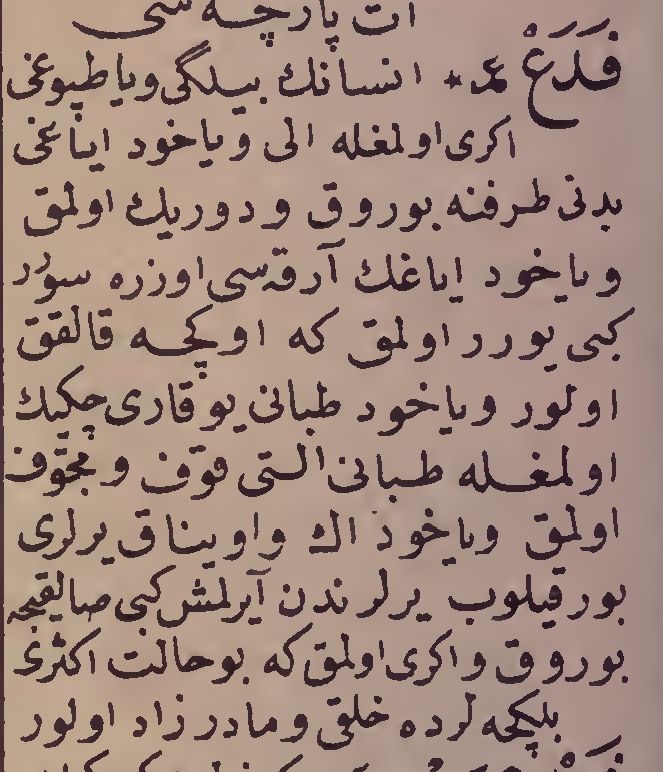 ات پارچه سی
فَدَعْ عـ * انسانك بيلگى ويا طپوغى
اكرى اولمغله الى وياخود اياغى
بدنى طرفنه بوروق ودوريك اولمق
وياخود اياغك آرقه سى اوزره سورر
كبى يورر اولمق كه اوكچه قالقق
اولور وياخود طبانى يوقارى چكيك
اولمغله طبانى التى قوّف ومجوّف
اولمق وياخود ال واويناق يرلرى
بورقيلوب يرلرندن آيرلمش كبى صالقيجه
بوروق واكرى اولمق كه بوحالت اكثرى
بلكجه لرده خلقى ومادرزاد اولور